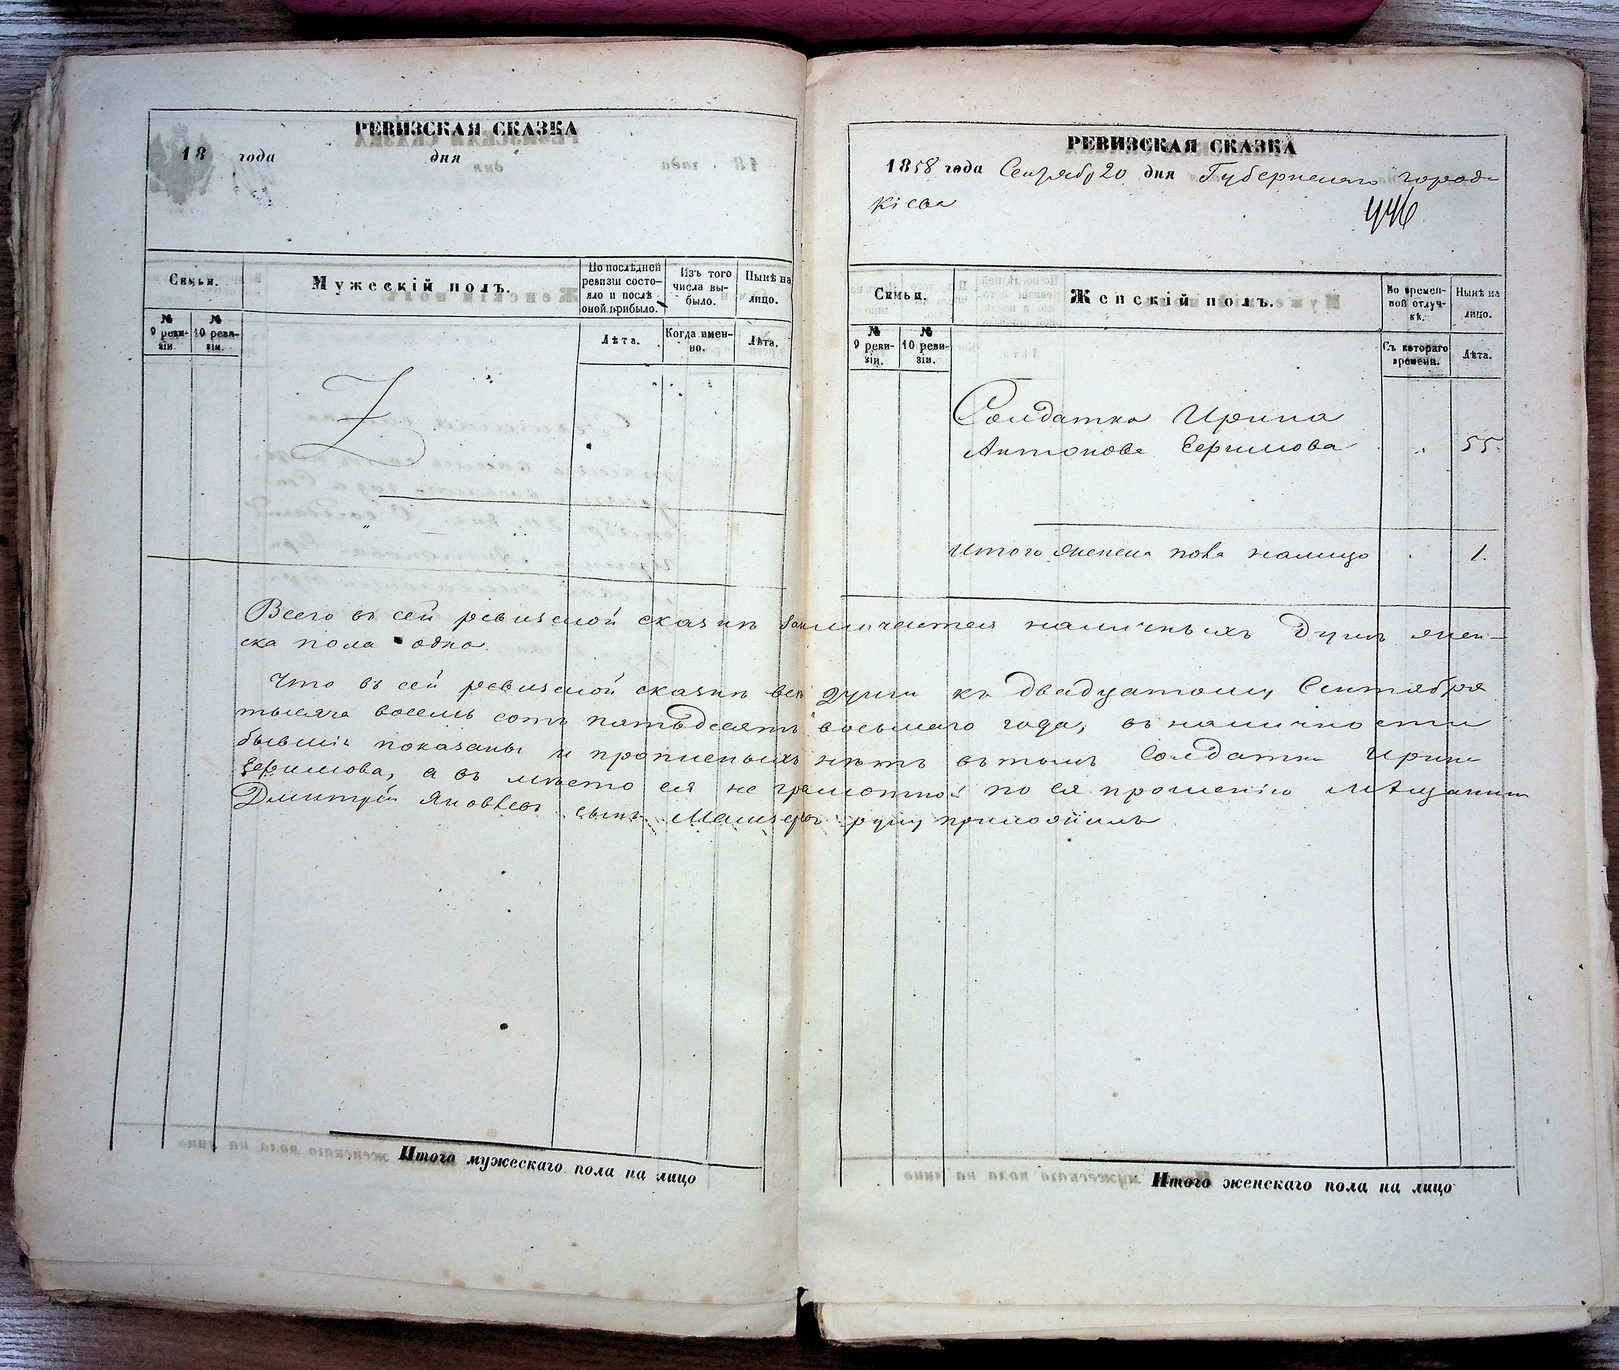 РЕВИЗСКАЯ СКАЗКА
18 года дня
Семьи.
Мужескій полъ.
По послѣдней ревизіи состояло и послѣ оной прибыло.
Изъ того числа выбыло.
Нынѣ на лицо.
№ 9 ревизіи.
№ 10 ревизіи.
Лѣта.
Когда именно.
Лѣта.
РЕВИЗСКАЯ СКАЗКА
1858 года Сентября 20 дня Губернскаго города
Кіева
446
Семьи.
Женскій полъ.
Во временной отлучкѣ.
Нынѣ на лицо.
№ 9 ревизіи.
№ 10 ревизіи.
Съ котораго времени.
Лѣта.
Солдатка Ирина
Антонова Ефимова 55.
Итого женска пола налицо 1.
Всего въ сей ревизской сказкѣ заключается наличныхъ душъ жен-
ска пола одна
Что въ сей ревизской сказкѣ всѣ души къ двадцатому Сентября
тысяча восемь сотъ пятьдесятъ восьмаго года, въ наличности
бывшіе показаны и прописныхъ нѣтъ въ томъ Солдатка Ирина
Ефимова, а въ мѣсто ея не грамотной по ея прошенію мѣщанинъ
Дмитрій Яковлевъ сынъ руку приложилъ
Итого мужескаго пола на лицо
Итого женскаго пола на лицо